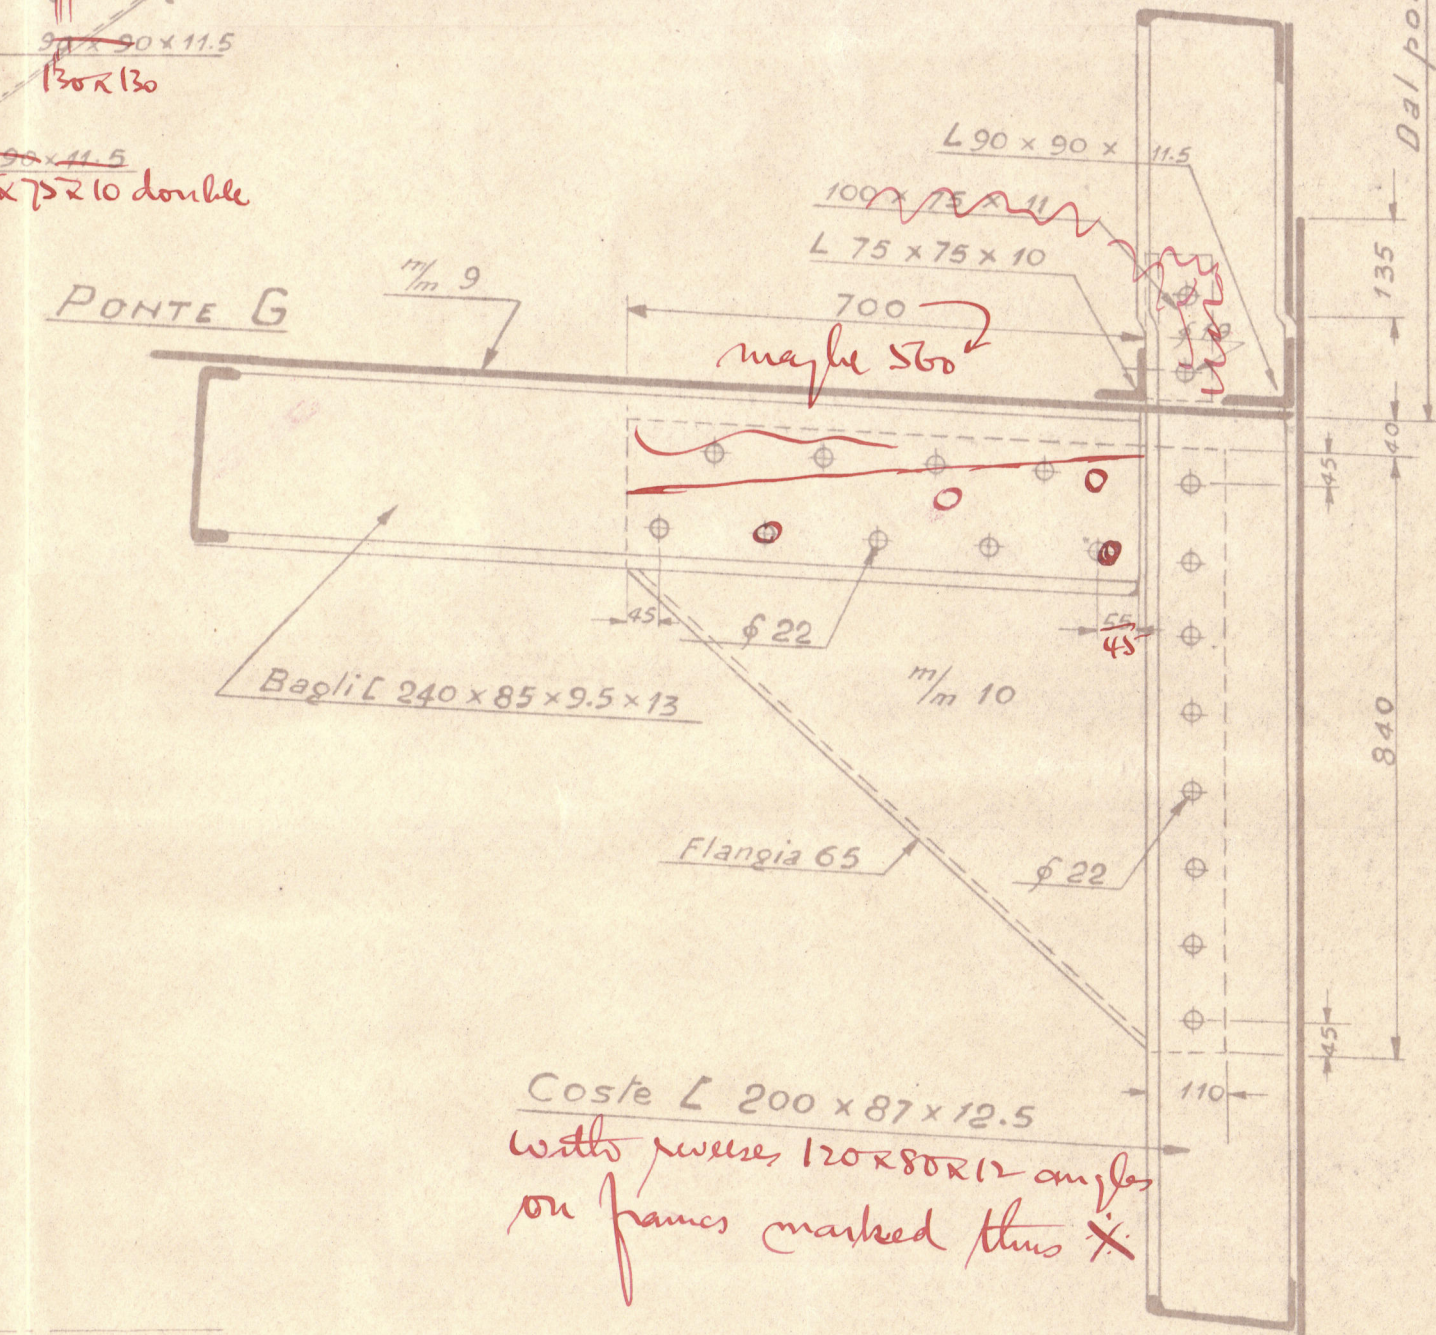 90 x 90 x 11.5
130 x 130
90 x 11.5
x 75 x 10 double
Dal po
L 90 x 90 x 11.5
100 x 75 x 11
L 75 x 75 x 10
PONTE G
m/m 9
700
maybe 560
135
40
45
45
ϕ 22
55
45
Bagli [ 240 x 85 x 9.5 x 13
m/m 10
840
Flangia 65
ϕ 22
45
110
Coste [ 200 x 87 x 12.5
with reverses 120 x 80 x 12 angles
on frames marked thus ※